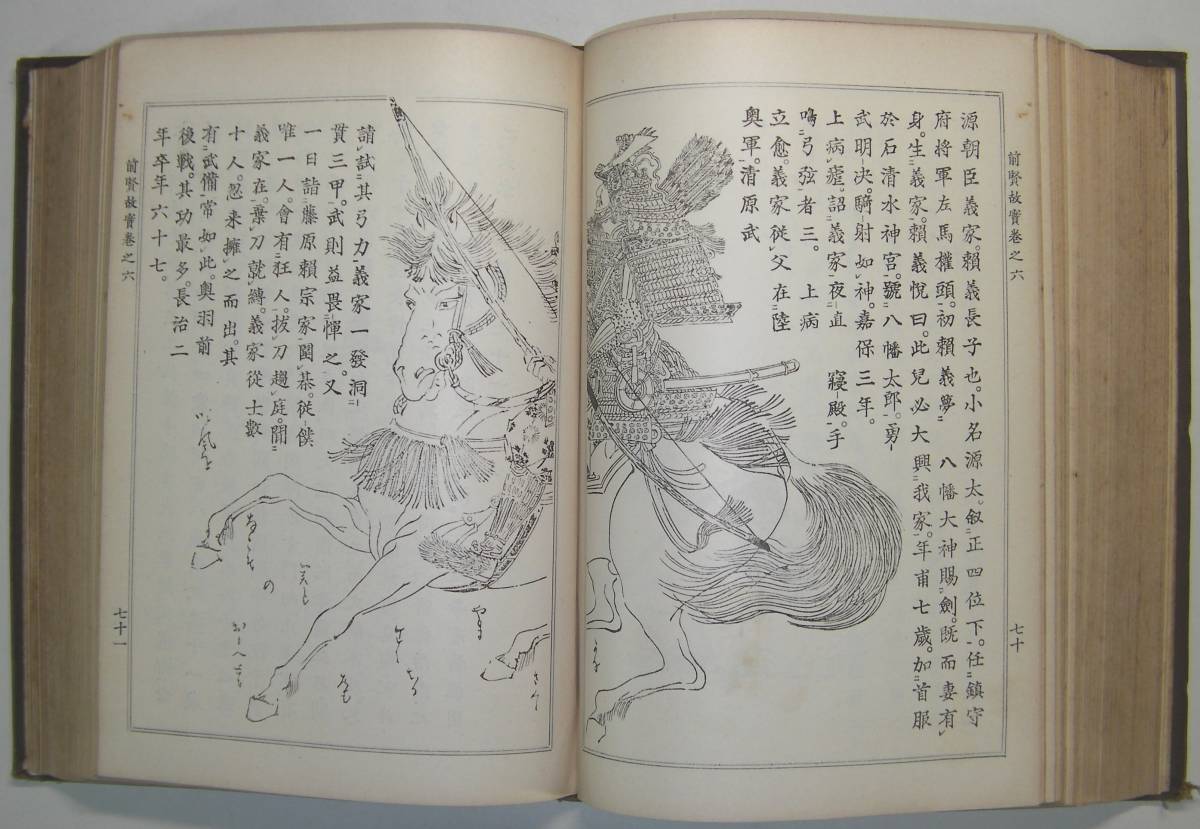 前賢故實卷之六
七十
源朝臣義家。賴義長子也。小名源太。叙正四位下。任鎮守
府將軍左馬權頭。初賴義夢八幡大神賜劍。既而妻有
身。生義家。賴義悅曰。此兒必大興我家。年甫七歲。加首服
於石清水神宮。號八幡太郎。勇
武明决。騎射如神。嘉保三年。
上病瘧。詔義家夜直寢殿。手
鳴弓弦者三。上病
立愈。義家從父在陸
奧軍。清原武
請試其弓力。義家一發洞
貫三甲。武則益畏憚之。又
一日詣藤原賴宗家圍棊。從僕
唯一人。會有狂人。拔刀趨庭。聞
義家在。棄刀就縛。義家從士數
十人。忽來擁之而出。其
有武備常如此。奧羽前
後戰。其功最多。長治二
年卒年六十七。
前賢故實卷之六
七十一